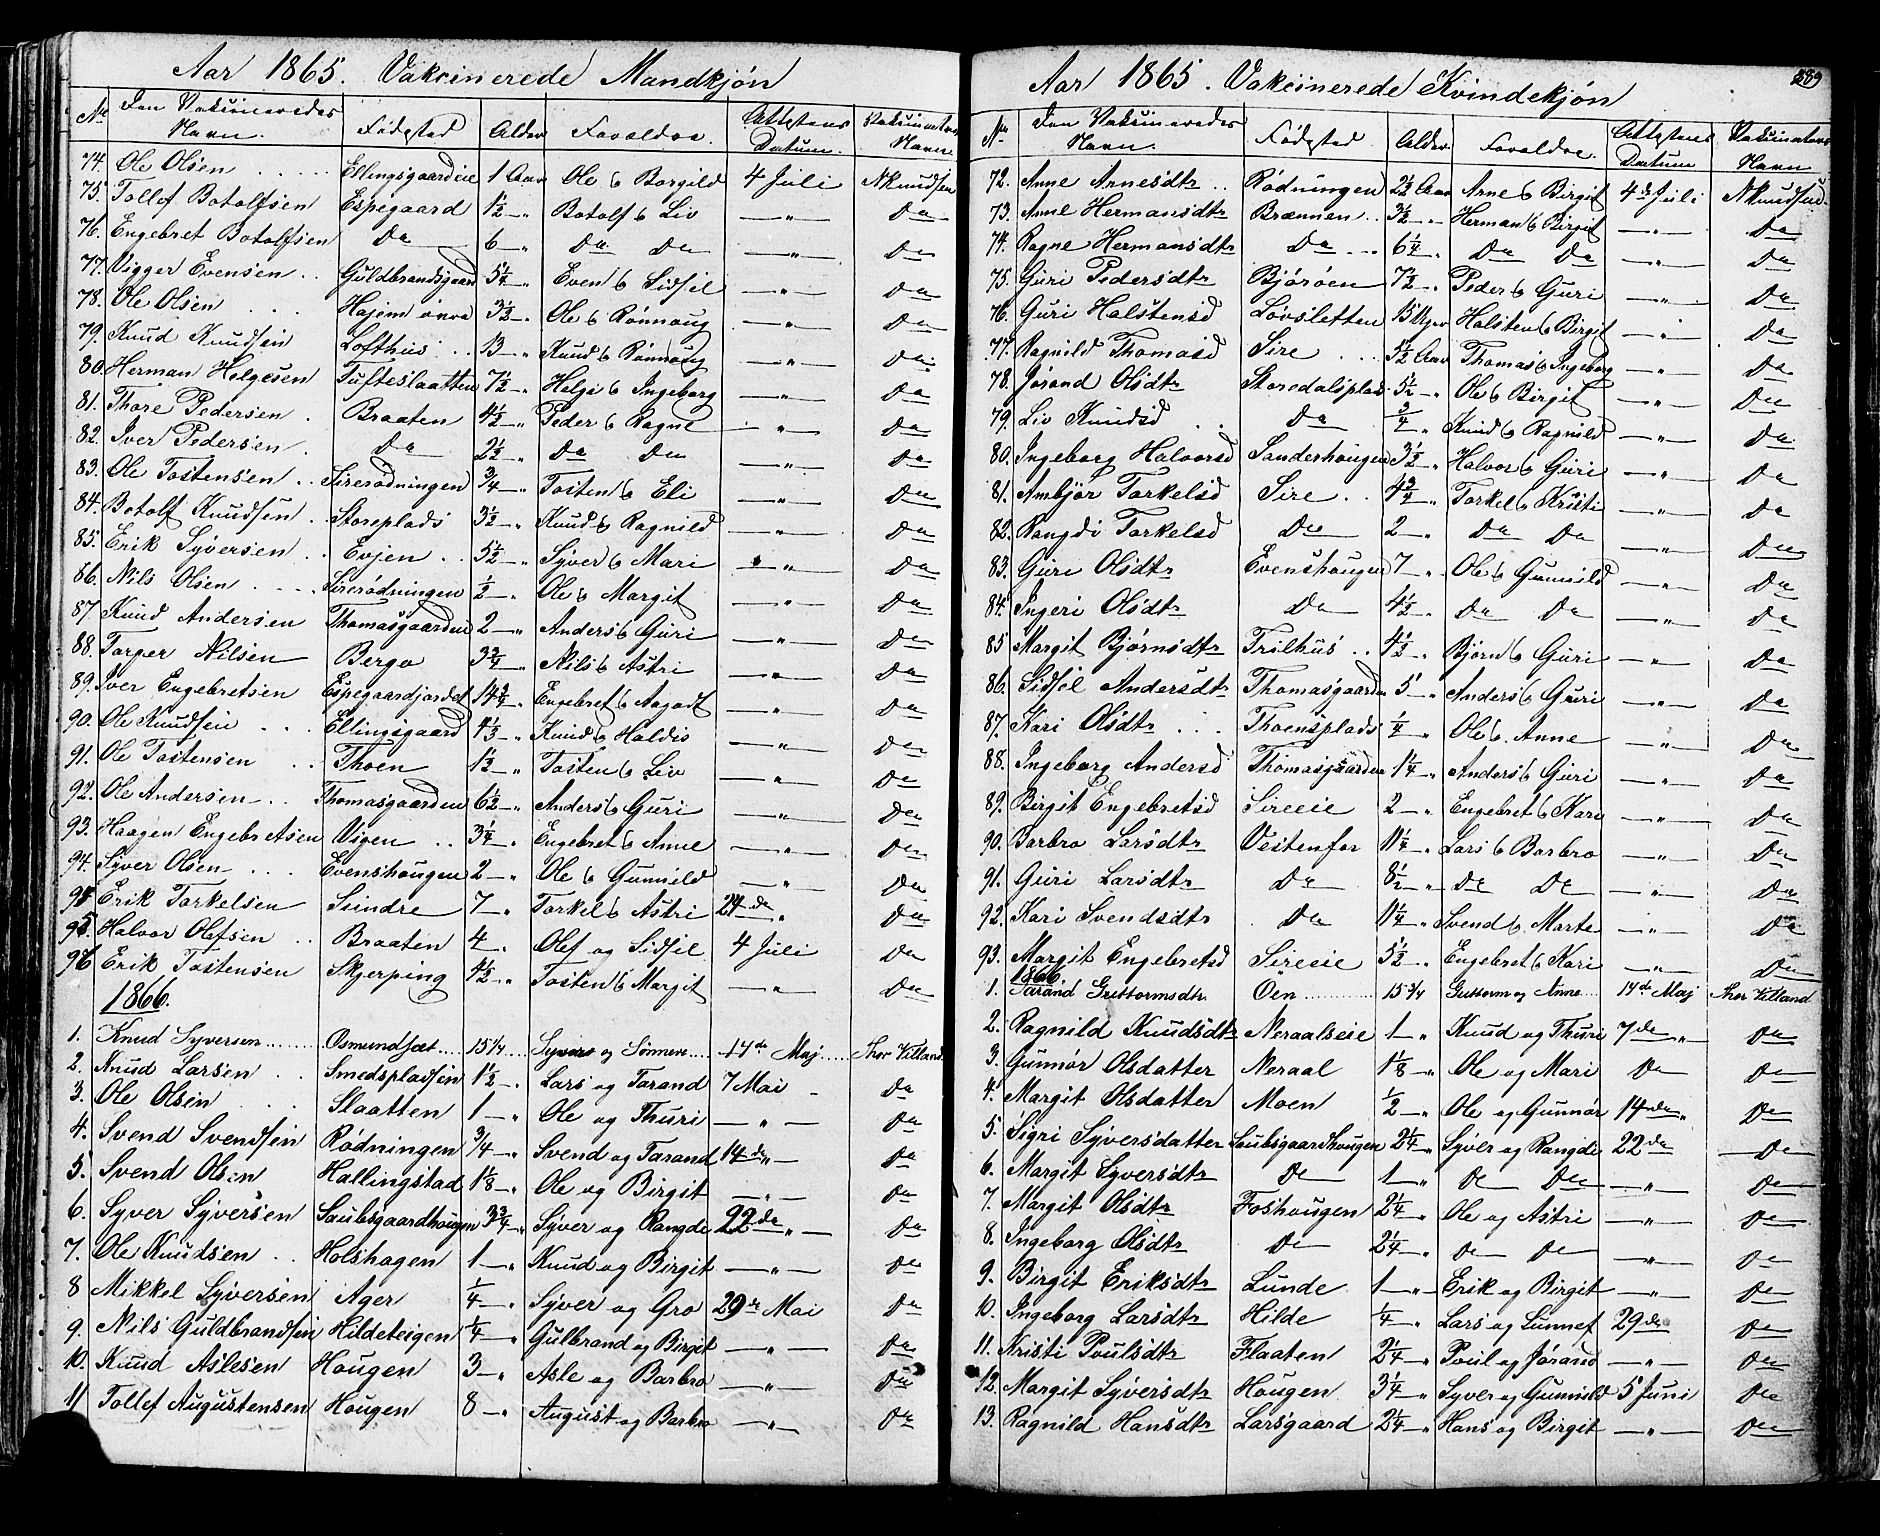 Aar 1865. Vakcinerede Mandkjøn
No Den Vakcineredes Navn. Fødested Alder Forældre. Attestens Datum. Vakcinateurs Navn.
74. Ole Olsen Ellingsgaardeie 1 Aar Ole & Borgild 4 Juli NKnudsen
75. Tollef Botolfsen Espegaard 1½ — " Botolf & Liv — " — Do
76. Engebret Botolfsen Do 6 — " Do Do — " — Do
77. Vigger Evensen Guldbrandsgaard 5¼ — " Even & Sidsel — " — Do
78. Ole Olsen Hajem øvre 3½ — " Ole & Rønnoug — " — Do
79. Knud Knudsen Lofthus 13 — " Knud & Rønnoug — " — Do
80. Herman Helgesen Tufteslaatten 7½ — " Helge & Ingeborg — " — Do
81. Thore Pedersen Braaten 4½ — " Peder & Ragne — " — Do
82. Iver Pedersen Do 2½ — " Do Do — " — Do
83. Ole Tostensen Sirerødningen ¾ — " Tosten & Eli — " — Do
84. Botolf Knudsen Storeplads 3½ — " Knud & Ragnild — " — Do
85. Erik Syversen Evjen 5½ — " Syver & Mari — " — Do
86. Nils Olsen Sirerødningen ½ — " Ole & Margit — " — Do
87. Knud Andersen Thomasgaarden 2 — " Anders & Guri — " — Do
88. Torger Nilsen Bergo 3¾ — " Nils & Astri — " — Do
89. Iver Engebretsen Espegaardjordet 14¾ — " Engebret & Aagodt — " — Do
90. Ole Knudsen Ellingsgaard 4½ — " Knud & Haldis — " — Do
91. Ole Tostensen Thoen 1½ — " Tosten & Liv — " — Do
92. Ole Andersen Thomasgaarden 6½ — " Anders & Guri — " — Do
93. Haagen Engebretsen Vigen 3¼ — " Engebret & Anne — " — Do
94. Syver Olsen Evenshougen 2 — " Ole & Gunnild — " — Do
Erik Torkelsen Sindre 7 — " Torkel & Astri 24 de " Do
95. Halvor Olefsen Braaten 4 — " Olef og Sidsel 4 Juli Do
96 Erik Tostensen Skjerping 4½ — " Tosten & Margit — " — Do
1866.
1. Knud Syversen Osmundsæt 15¼ Syver og Sønneve 14de Maj Thor Villand
2. Knud Larsen Smedspladsen 1½ — " Lars og Tarand 7 Mai Do
3. Ole Olsen Slaatten 1 — " Ole og Thuri — " — Do
4. Svend Svendsen Rødningen ¾ — " Svend og Tarand 14 de " — Do
5. Svend Olsen Hallingstad 1⅛ — " Ole og Birgit — " — Do
6. Syver Syversen Saubsgaardhougen 3¾ — " Syver og Rangdi 22 de " — Do
7. Ole Knudsen Holshagen 1 — " Knud og Birgit — " — Do
8 Mikkel Syversen Ager ¼ — " Syver og Gro 29 de Mai Do
9. Nils Guldbrandsen Hildeteigen ¼ — " Gulbrand og Birgit — " — Do
10. Knud Aslesen Hougen 3 — " Asle og Barbro — " — Do
11 Tollef Augustensen Hougen 8 — " August og Barbro — " — Do
Aar 1865. Vakcinerede Kvindekjøn 289
No Den Vakcineredes Navn. Fødested Alder. Forældre. Attestens Datum Vakcinateurs Navn
72. Anne Arnesdtr Rødningen 2½ Aar Arne & Birgit 4de Juli NKnudsen
73. Anne Hermansdtr Brænnen 3½ — " Herman & Birgit — " — Do
74. Ragne Hermansdtr Do 6¼ — " Do Do — " — Do
75. Guri Pedersdtr Bjørøen 7½ — " Peder & Guri — " — Do
76. Guri Halstensd Lovsletten 15 Uger Halsten & Birgit — " — Do
77. Ragnild Thomasd Sire 5½ Aar Thomas & Ingeborg — " — Do
78. Jørand Olsdtr Storedalsplads 5½ — " Ole & Birgit — " — Do
79. Liv Knudsd Do ¾ — " Knud & Ragnild — " — Do
80. Ingeborg Halvorsd Sanderhougen 3½ — " Halvor & Guri — " — Do
81. Ambjør Torkelsd Sire 4¾ — " Torkel & Kristi — " — Do
82. Rangdi Torkelsd Do 2 — " Do Do — " — Do
83. Guri Olsdtr Evenshougen 7 — " Ole & Gunnild — " — Do
84. Ingeri Olsdtr Do 4½ — " Do Do — " — Do
85 Margit Bjørnsdtr Trilhus 4½ — " Bjørn & Guri — " — Do
86. Sidsel Andersdtr Thomasgaarden 5 — " Anders & Guri — " — Do
87. Kari Olsdtr Thoensplads ¼ — " Ole & Anne — " — Do
88. Ingeborg Andersd Thomasgaarden 1¼ — " Anders & Guri — " — Do
89. Birgit Engebretsd Sireeie 2 — " Engebret & Kari — " — Do
90. Barbro Larsdtr Vestenfor 11¼ — " Lars & Barbro — " — Do
91. Guri Larsdtr Do 8½ — " Do Do — " — Do
92. Kari Svendsdtr Do 11¼ — " Svend & Marte — " — Do
93. Margit Engebretsd Sireeie 5½ — " Engebret & Kari — " — Do
1866.
1. Tarand Guttormsdtr Øen 15¾ Guttorm og Anne 14de Maj Thor Villand
2. Ragnild Knudsdtr Neraalseie 1 — " Knud og Thuri 7 de " Do
3. Gunnør Olsdatter Neraal 1⅛ — " Ole og Mari Do Do
4. Margit Olsdatter Moen ½ — " Ole og Gunnør 14 de " Do
5. Sigri Syversdatter Saubsgaardhougen 2¼ — " Syver og Rangdi 22 de Do
6. Margit Syversdtr Do 1 — " Do Do — " — Do
7. Margit Olsdtr Foshougen 2¼ — " Ole og Astri — " — Do
8. Ingeborg Olsdtr Do 2¼ — " Do Do — " — Do
9. Birgit Eriksdtr Lunde 1 — " Erik og Birgit — " — Do
10. Ingeborg Larsdtr Hilde ¼ — " Lars og Sunnef 29 de Do
11. Kristi Poulsdtr Flaaten 2¼ — " Poul og Jørand — " — Do
12. Margit Syversdtr Hougen 3¼ — " Syver og Gunnild 5 Juni Do
13. Ragnild Hansdtr Larsgaard 2¼ — " Hans og Birgit — " — Do